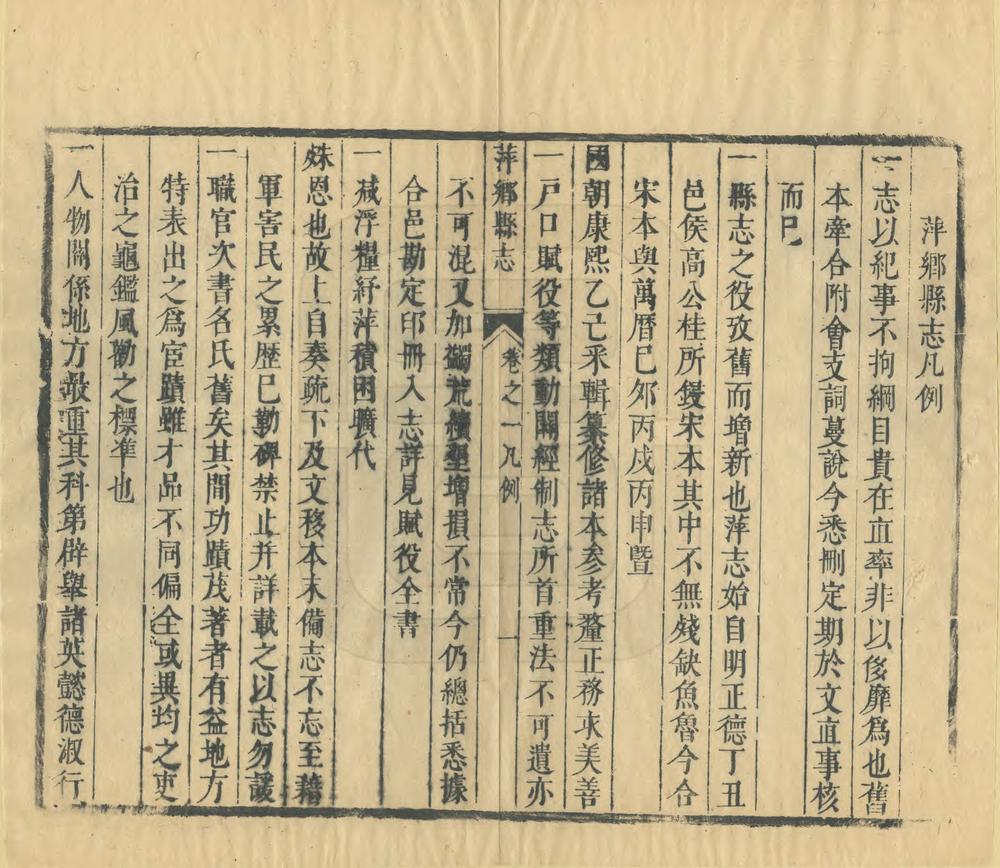 萍鄉縣志凡例
一志以紀事不拘綱目貴在直率非以侈靡爲也舊
本牽合附會支詞蔓說今悉刪定期於文直事核
而已
一縣志之役攷舊而增新也萍志始自明正德丁丑
邑侯高公桂所鋟宋本其中不無殘缺魚魯今合
宋本與萬曆己夘丙戌丙申暨
國朝康熙乙己釆輯纂修諸本參考釐正務求美善
一戸口賦役等類動關經制志所首重法不可遺亦
萍鄉縣志
卷之一凡例
一
不可混又加蠲荒續墾增損不常今仍總括悉據
合邑勘定印冊入志詳見賦役全書
一减浮糧紓萍積困曠代
殊恩也故上自奏疏下及文移本末備志不忘至藉
軍害民之累歷已勒碑禁止并詳載之以志勿諼
一職官次書名氏舊矣其間功蹟茂著者有益地方
特表出之爲宦蹟雖才品不同偏全或異均之吏
治之龜鑑風勸之標準也
一人物關係地方最重其科第辟舉諸英懿德淑行